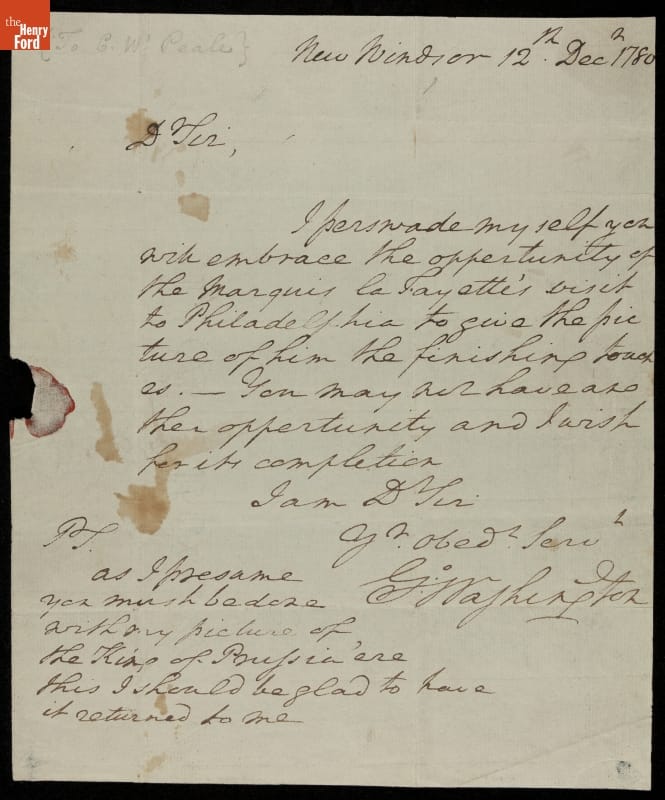 the
Henry
Ford
{To C. Wn Peale}
New Windsor 12th. Decr 1780
Dr Sir,
I perswade myself you
will embrace the oppertunity of
the Marquis la Fayette's visit
to Philadelphia to give the pic
ture of him the finishing touch
es. — You may not have ano
ther oppertunity and I wish
for its completion
I am Dr Sir
Yr. obedt. Servt
Go: Washington
PS.
as I presume
you must be done
with my picture of
the King of Prussia 'ere
this I should be glad to have
it returned to me